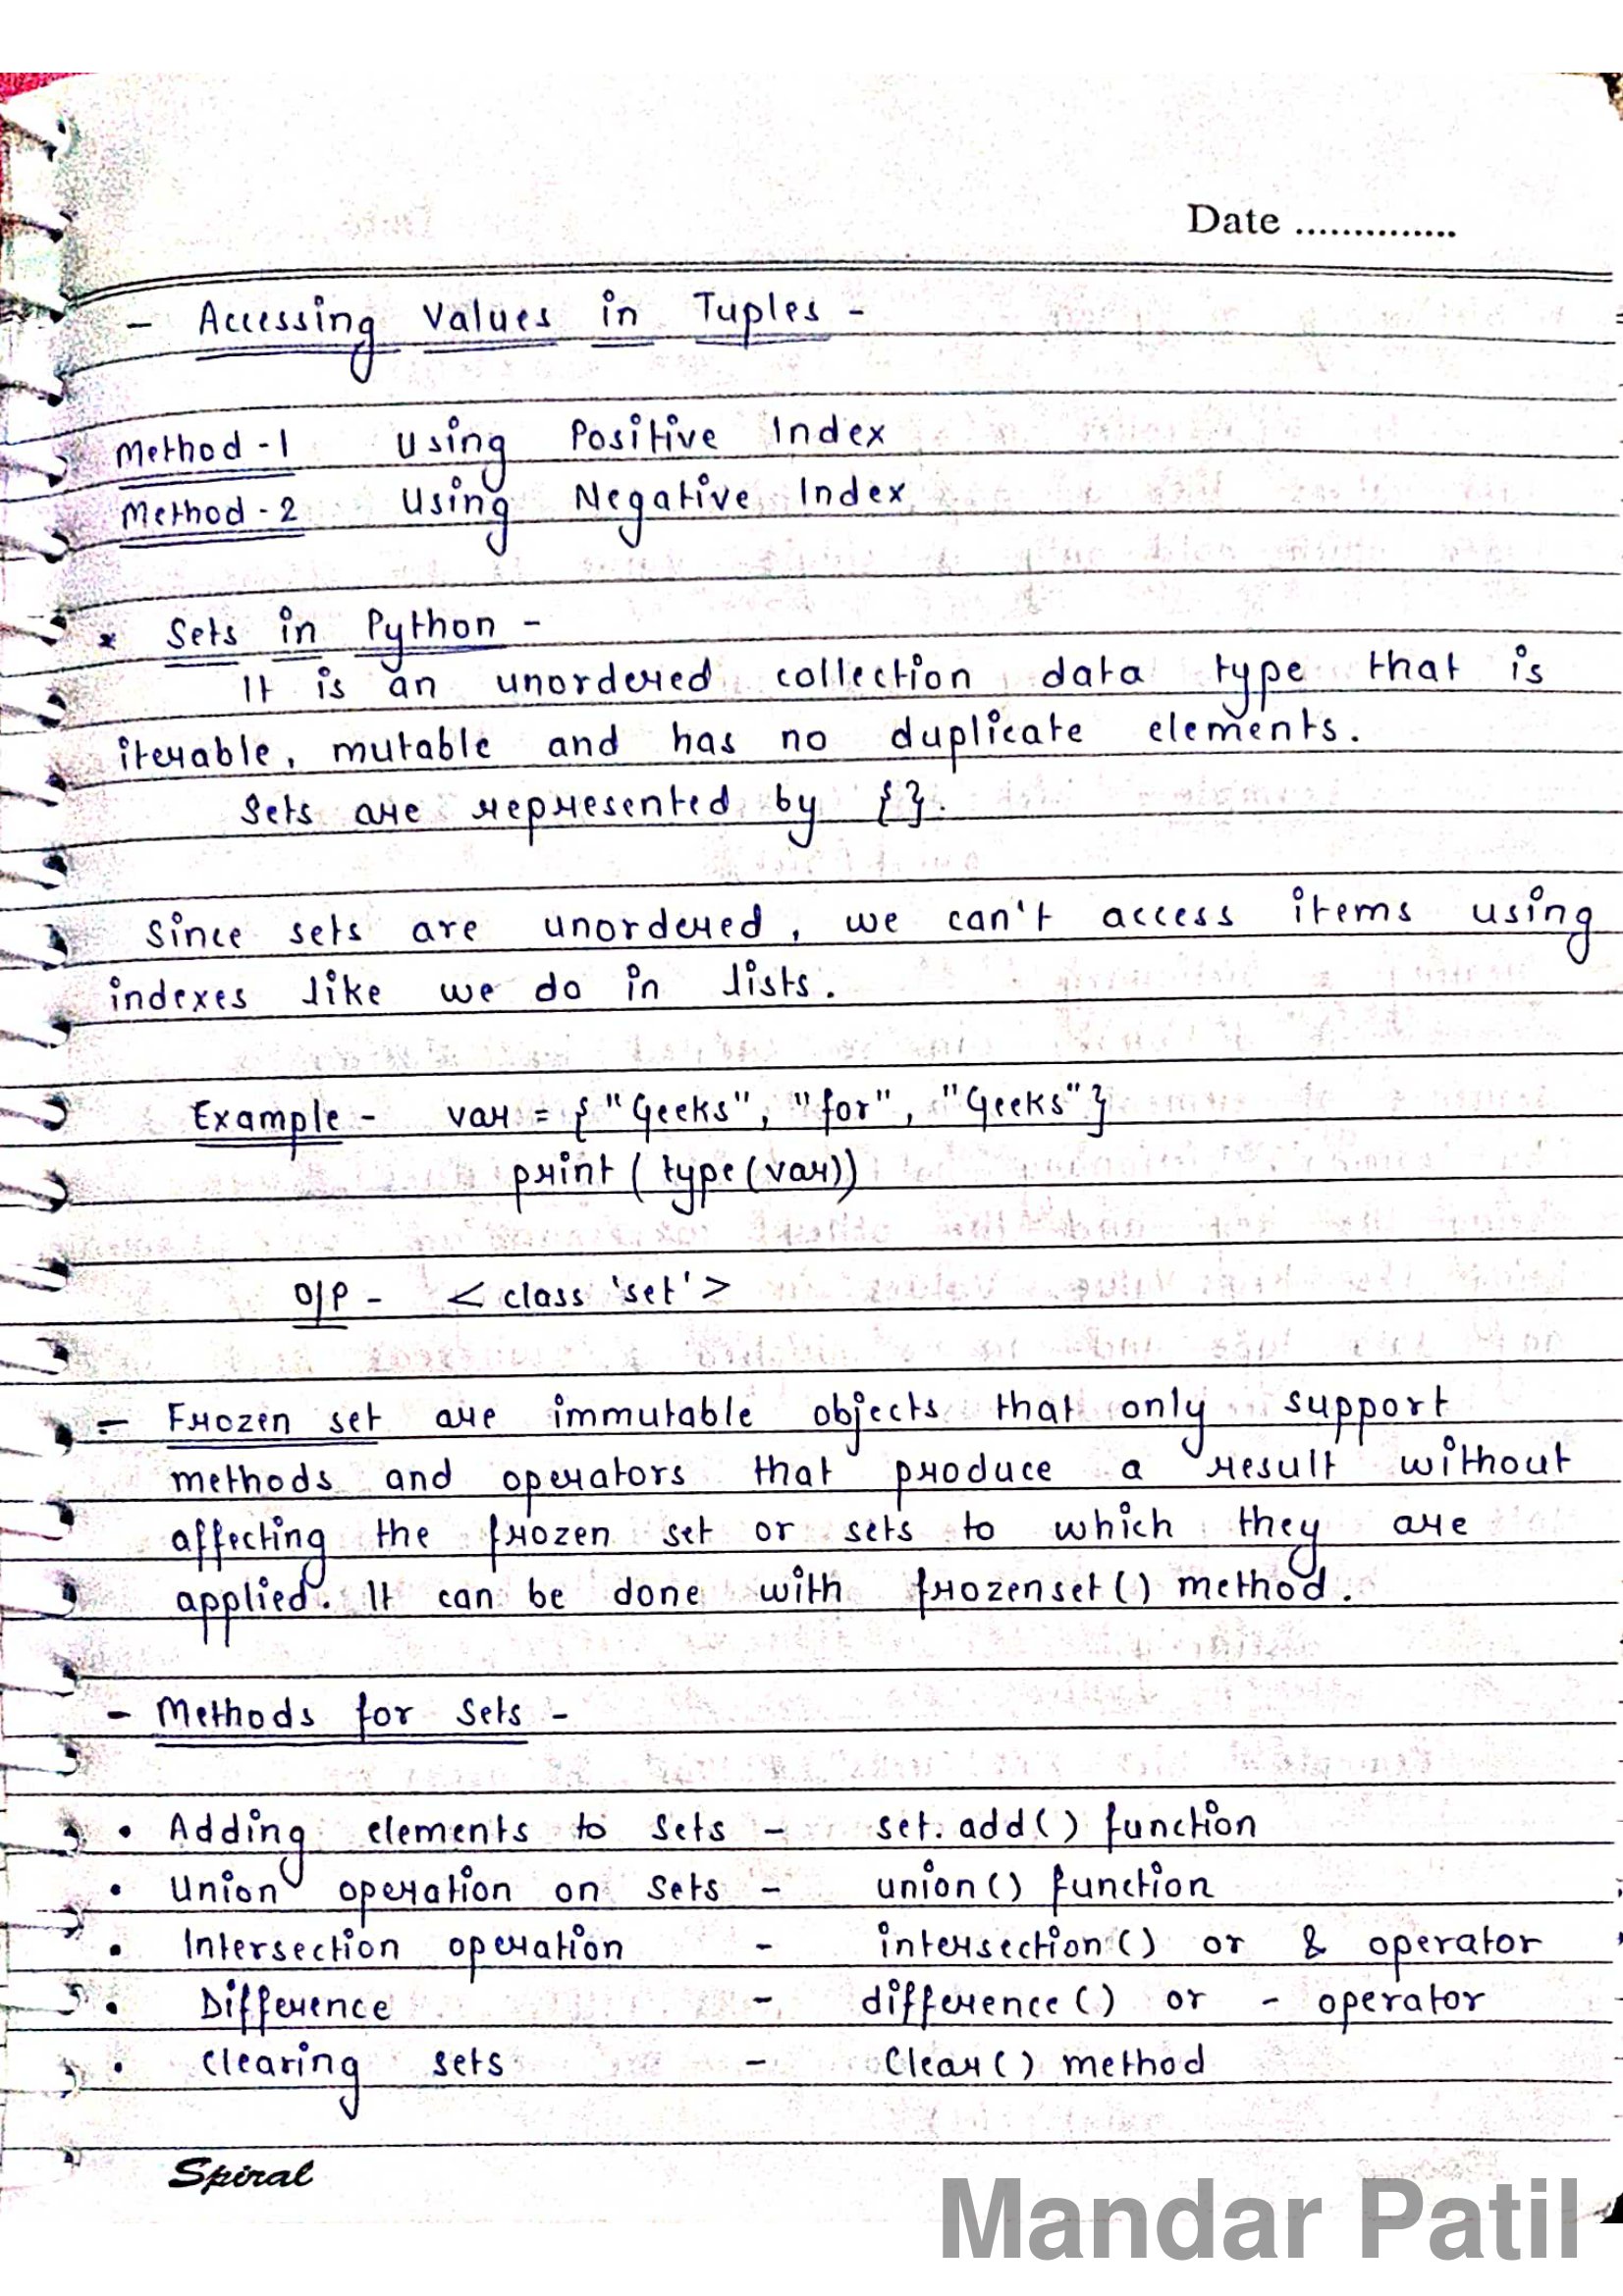 Date ..............
- Accessing Values in Tuples -
Method-1 Using Positive Index
Method-2 Using Negative Index
* Sets in Python -
It is an unordered collection data type that is
iterable, mutable and has no duplicate elements.
Sets are represented by {}.
Since sets are unordered, we can't access items using
indexes like we do in lists.
Example - var = {"Geeks", "for", "Geeks"}
print(type(var))
O/P - <class 'set'>
- Frozen set are immutable objects that only support
methods and operators that produce a result without
affecting the frozen set or sets to which they are
applied. It can be done with frozenset() method.
- Methods for Sets -
• Adding elements to sets - set.add() function
• Union operation on sets - union() function
• Intersection operation - intersection() or & operator
• Difference - difference() or - operator
• Clearing sets - Clear() method
Spiral
Mandar Patil